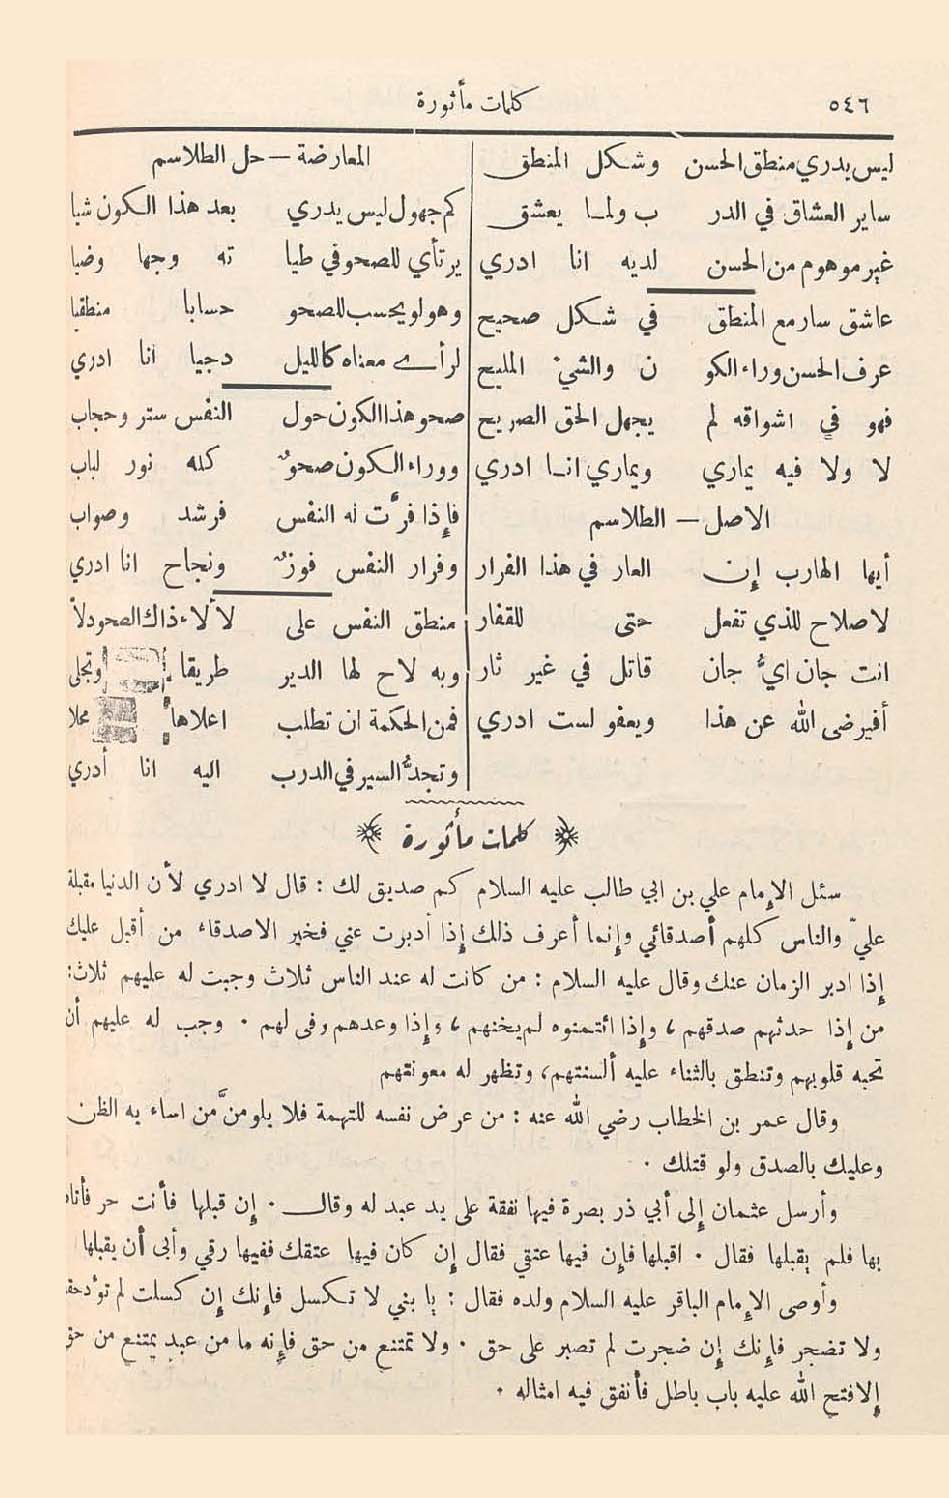 ٥٤٦
كلمات مأثورة
ليس يدري منطق الحسن وشكل المنطق
ساير العشاق في الدر ب ولما يعشق
غير موهوم من الحسن لديه انا ادري
عاشق سار مع المنطق في شكل صحيح
عرف الحسن وراء الكو ن والشيء المليح
فهو في اشواقه لم يجهل الحق الصريح
لا ولا فيه يماري ويماري انا ادري
الاصل — الطلاسم
أيها الهارب إن العار في هذا الفرار
لا صلاح للذي تفعل حتى للقفار
انت جان ايُّ جان قاتل في غير ثار
أفيرضى الله عن هذا ويعفو لست ادري
المعارضة — حل الطلاسم
كم جهول ليس يدري بعد هذا الكون شيا
يرتأي للصحو في طيا ته وجها وضيا
وهو لو يحسب للصحو حسابا منطقيا
لرأى معناه كالليل دجيا انا ادري
صحو هذا الكون حول النفس ستر وحجاب
ووراء الكون صحوٌ كله نور لباب
فإذا فرَّت له النفس فرشد وصواب
وفرار النفس فوزٌ ونجاح انا ادري
منطق النفس على لألاء ذاك الصحو دلاّ
وبه لاح لها الدير طريقا وتجلى
فمن الحكمة ان تطلب اعلاها محلا
وتجدُّ السير في الدرب اليه انا أدري
كلمات مأثورة
سئل الإمام علي بن ابي طالب عليه السلام كم صديق لك : قال لا ادري لأن الدنيا مقبلة
عليّ والناس كلهم أصدقائي وإنما أعرف ذلك إذا أدبرت عني فخير الاصدقاء من أقبل عليك
إذا ادبر الزمان عنك وقال عليه السلام : من كانت له عند الناس ثلاث وجبت له عليهم ثلاث:
من إذا حدثهم صدقهم ، وإذا ائتمنوه لم يخنهم ، وإذا وعدهم وفى لهم . وجب له عليهم أن
تحبه قلوبهم وتنطق بالثناء عليه ألسنتهم، وتظهر له معونتهم
وقال عمر بن الخطاب رضي الله عنه : من عرض نفسه للتهمة فلا يلومنَّ من اساء به الظن
وعليك بالصدق ولو قتلك .
وأرسل عثمان إلى أبي ذر بصرة فيها نفقة على يد عبد له وقال . إن قبلها فأنت حر فأتاه
بها فلم يقبلها فقال . اقبلها فإن فيها عتقي فقال إن كان فيها عتقك ففيها رقي وأبى أن يقبلها
وأوصى الإمام الباقر عليه السلام ولده فقال : يا بني لا تكسل فإنك إن كسلت لم تؤد حقا
ولا تضجر فإنك إن ضجرت لم تصبر على حق . ولا تمتنع من حق فإنه ما من عبد يمتنع من حق
إلا فتح الله عليه باب باطل فأنفق فيه امثاله .